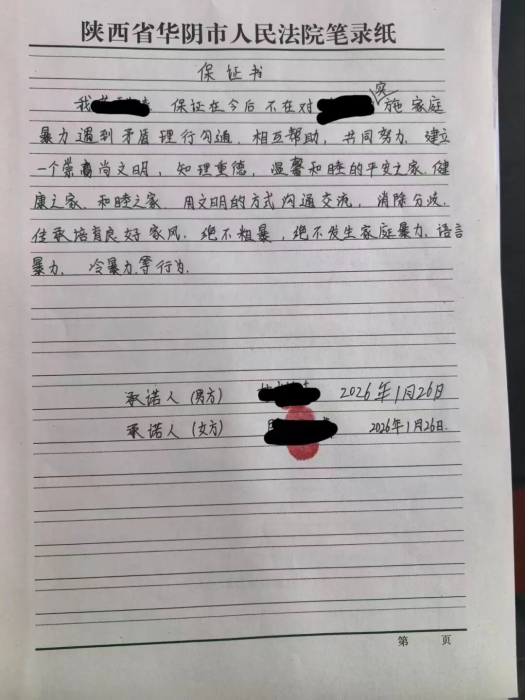 陕西省华阴市人民法院笔录纸
保证书
我 保证在今后不在对 实施家庭
暴力遇到矛盾理行勾通，相互帮助，共同努力，建立
一个崇高尚文明，知理重德，温馨和睦的平安之家.健
康之家.和睦之家 用文明的方式沟通交流，消除分歧.
传承培育良好家风.绝不粗暴，绝不发生家庭暴力.语言
暴力. 冷暴力.等行为.
承诺人(男方) 2026年1月26日
承诺人(女方) 2026年1月26日.
第 页